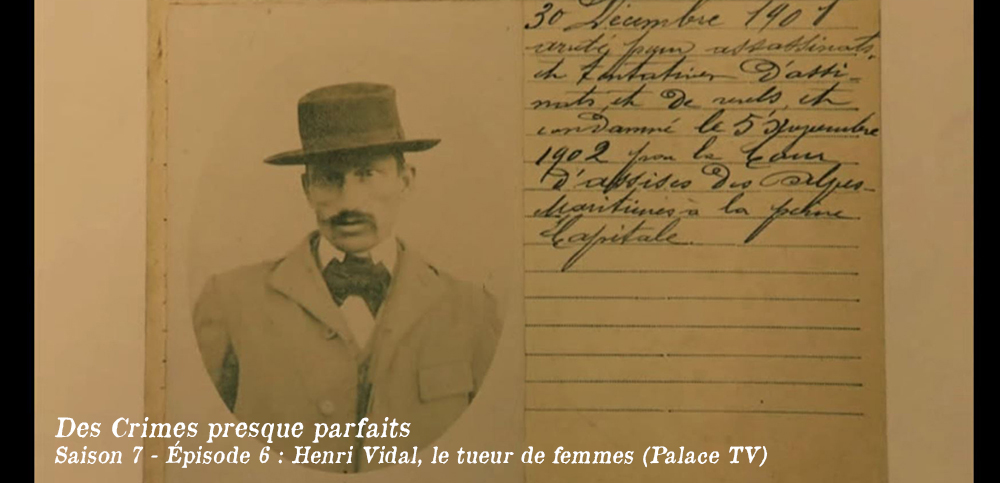 30 Décembre 1901
arrêté pour assassinats,
et tentatives D'assi-
nats, et De vols, et
condamné le 5 Novembre
1902 par la Cour
D'assises Des Alpes-
Maritimes à la peine
Capitale.
Des Crimes presque parfaits
Saison 7 - Épisode 6 : Henri Vidal, le tueur de femmes (Palace TV)